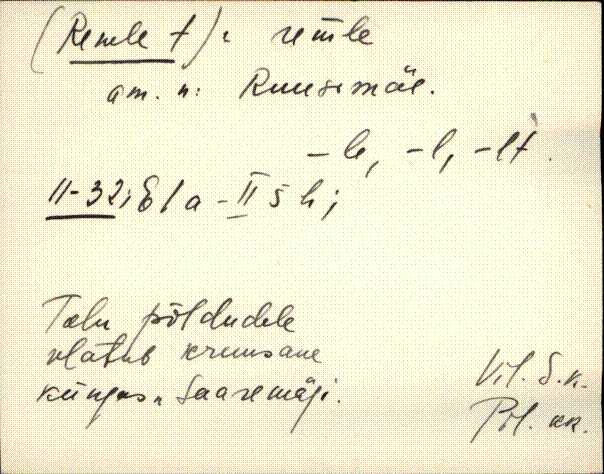 (Remle t) : remle
am. n: Ruusimäe.
-le, -l, -lt.
11-32; E1a - II 5 h;
Talu põldudele
ulatub kruusane
küngas " Saaremägi.
Vil. S.n.
Pol. kk.